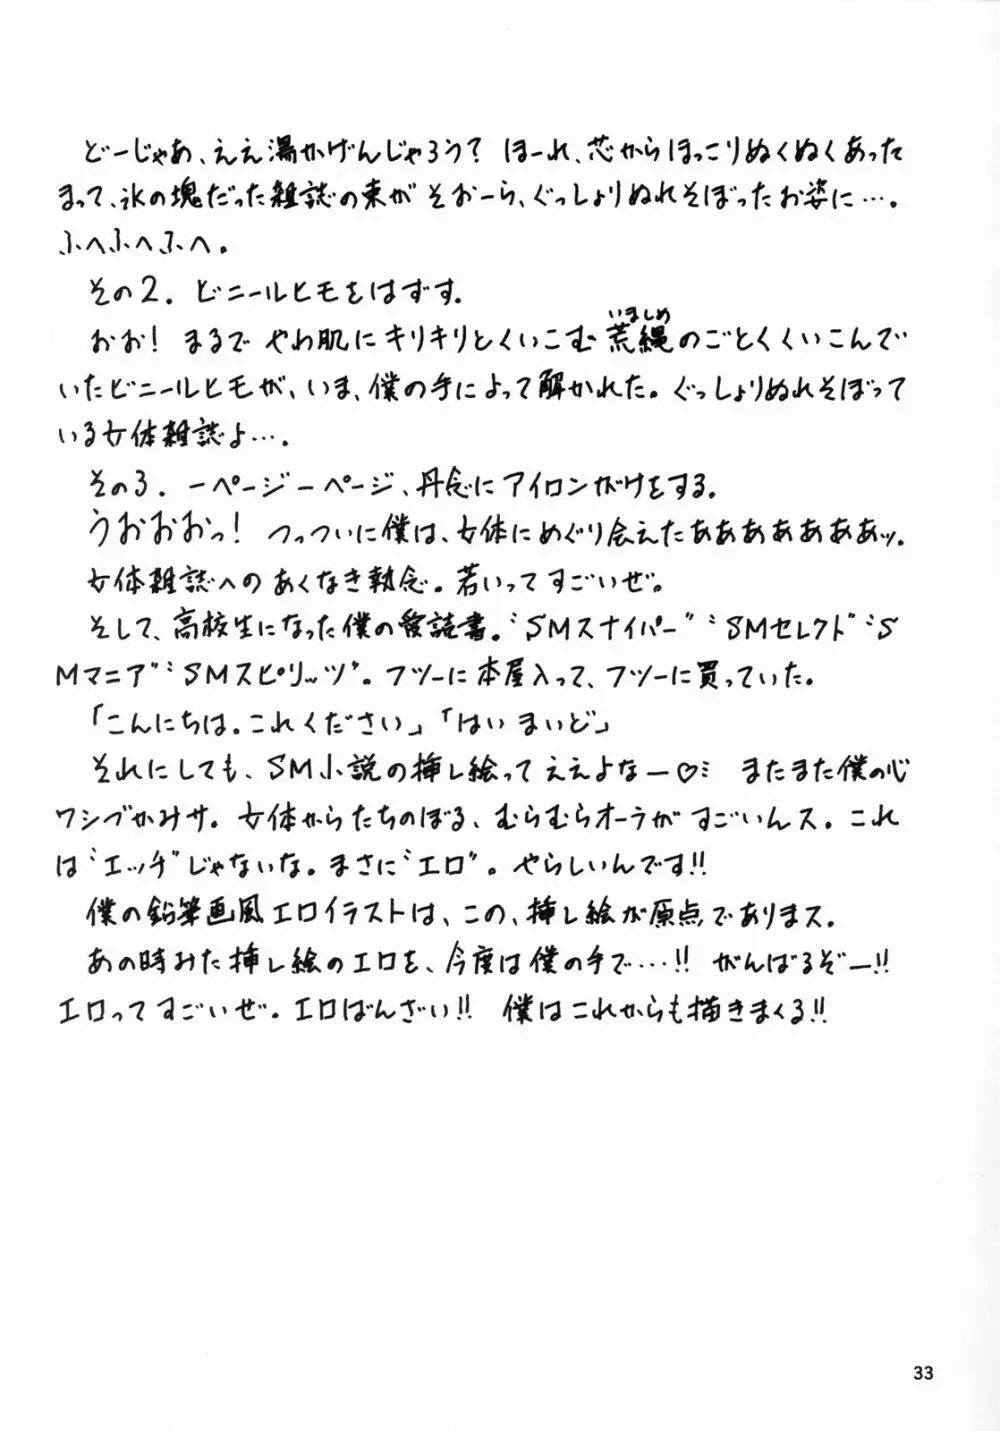 どーじゃあ、ええ湯かげんじゃろう？ ほーれ、芯からほっこりぬくぬくあった
まって、氷の塊だった雑誌の束が そおーら、ぐっしょりぬれそぼったお姿に…。
ふへふへふへ。
その2. ビニールヒモをはずす。
おお！ まるで やわ肌にキリキリとくいこむ 荒縄のごとくくいこんで
いましめ
いたビニールヒモが、いま、僕の手によって解かれた。ぐっしょりぬれそぼって
いる女体雑誌よ…。
その3. 一ページ一ページ、丹念にアイロンがけをする。
うおおおっ！ つっついに僕は、女体にめぐり会えたあああああああッ。
女体雑誌への あくなき執念。若いって すごいぜ。
そして、高校生になった僕の愛読書。〝SMスナイパー〟〝SMセレクト〟〝S
Mマニア〟〝SMスピリッツ〟。フツーに本屋入って、フツーに買っていた。
「こんにちは。これください」「はい まいど」
それにしても、SM小説の挿し絵って ええよなー♡ またまた僕の心
ワシづかみサ。女体からたちのぼる、むらむらオーラが すごいんス。これ
は〝エッチ〟じゃないな。まさに〝エロ〟。やらしいんです!!
僕の鉛筆画風エロイラストは、この、挿し絵が原点でありまス。
あの時みた挿し絵のエロを、今度は僕の手で…!! がんばるぞー!!
エロってすごいぜ。エロばんざい!! 僕はこれからも描きまくる!!
33